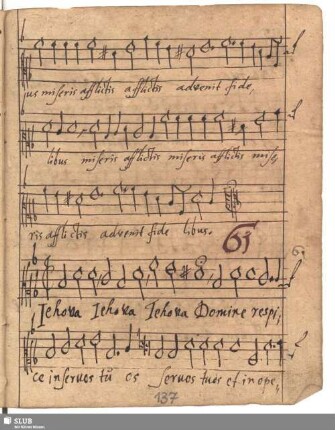 us miseris afflictis afflictis advenit fide,
libus miseris afflictis miseris afflictis mise,
ris afflictis advenit fide libus.
61
Iehova Iehova Iehova Domine respi,
ce in servos tu os servos tuos et in ope,
137
SLUB